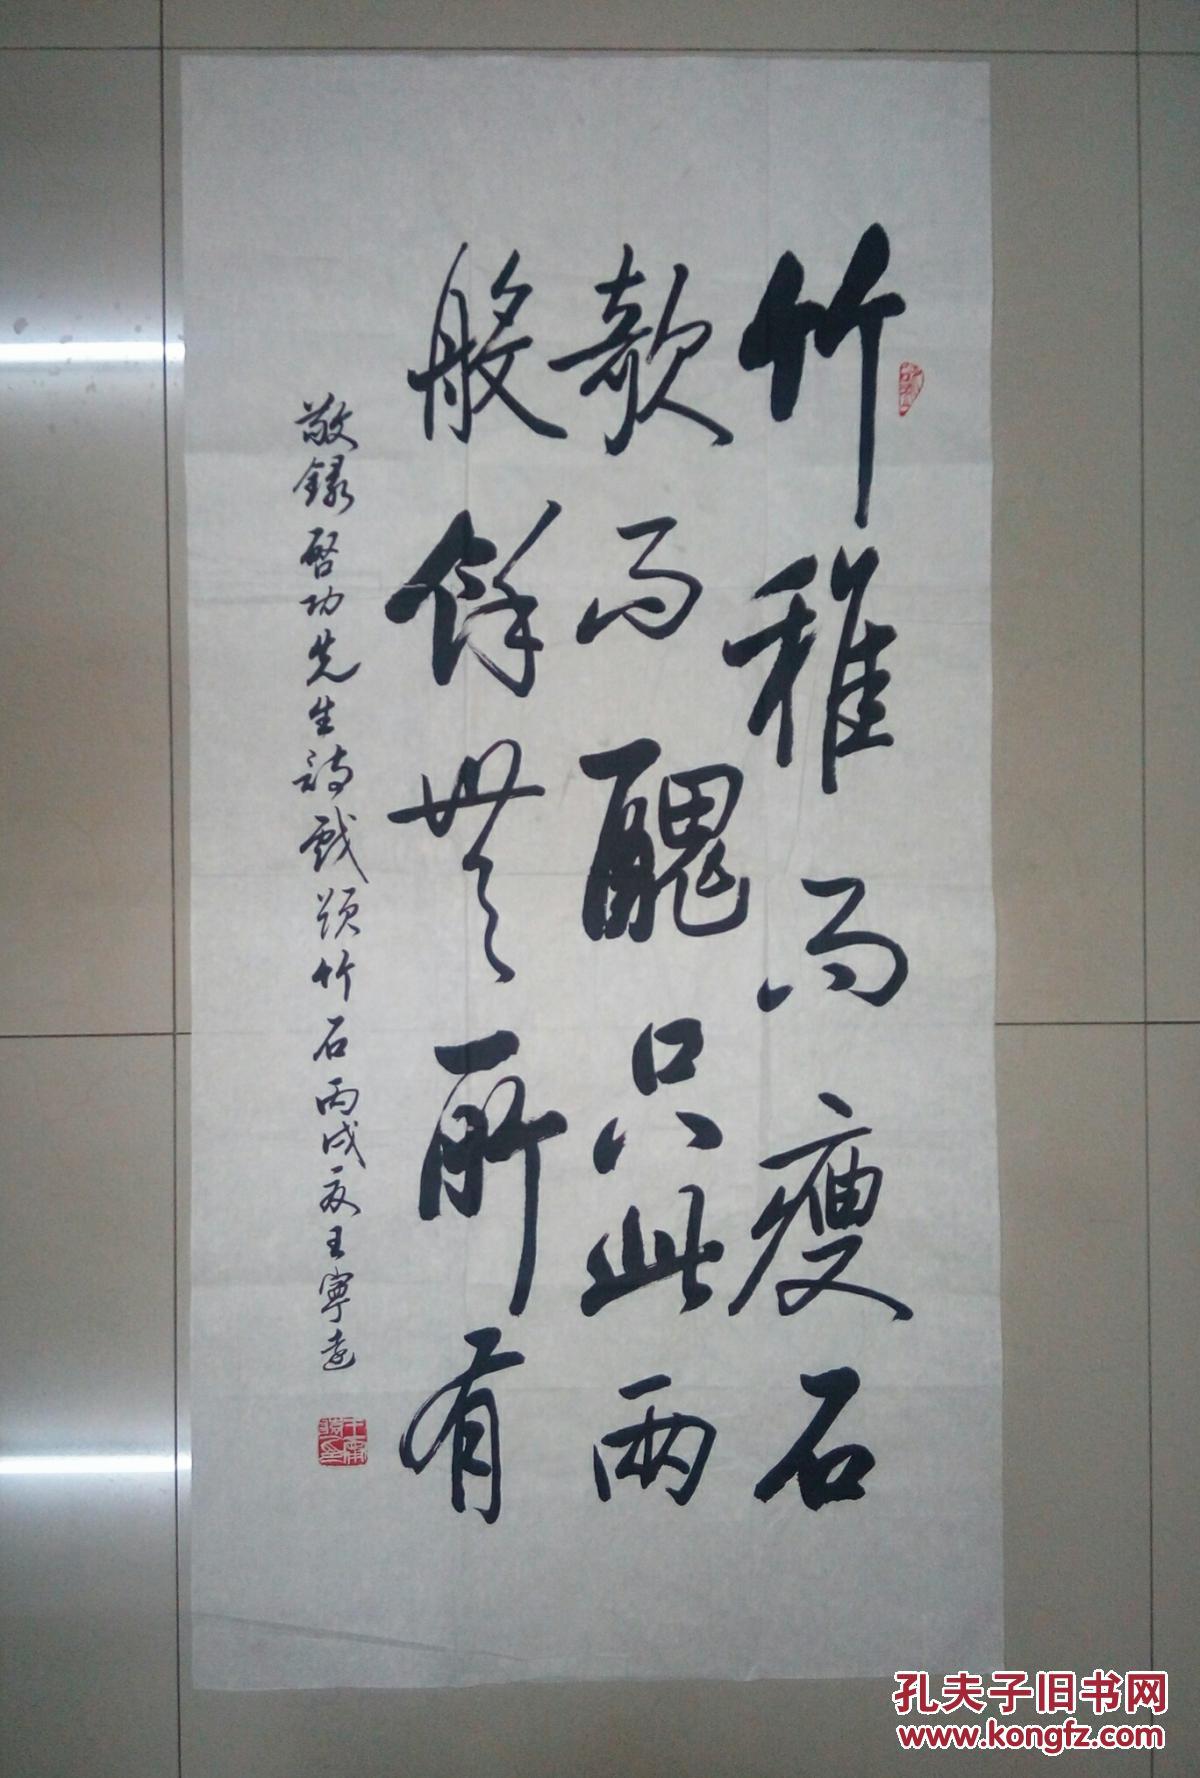 竹稚而瘦石
欹而醜只此兩
般餘無所有
敬録啓功先生詩戲題竹石丙戌夏王寧遠
孔夫子旧书网
www.kongfz.com